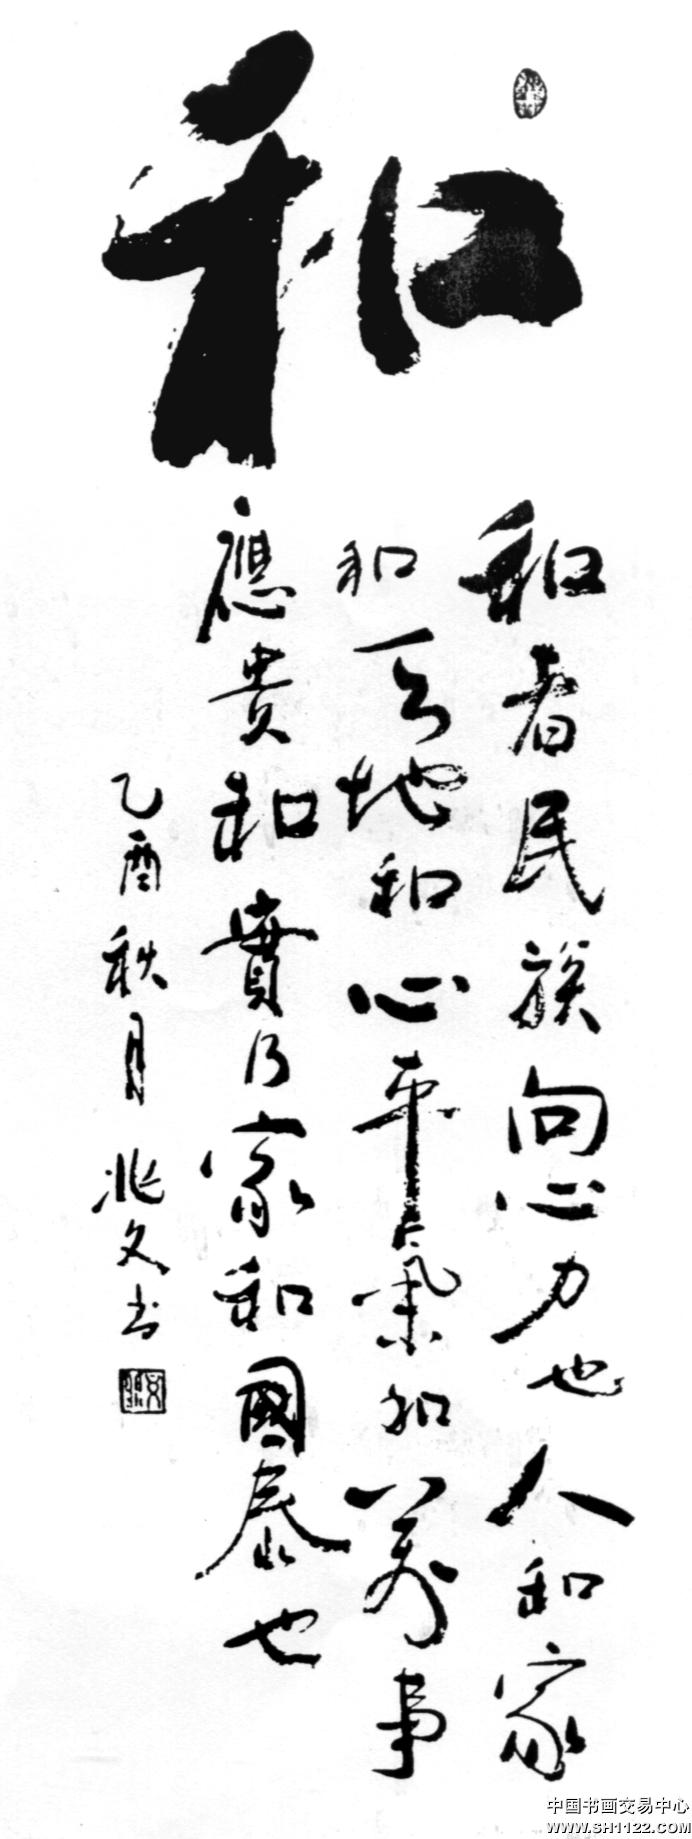 和
和者民族向心力也人和家
和天地和心平氣和萬事
應貴和實乃家和國泰也
乙酉秋月兆文书
中国书画交易中心
WWW.SH1122.COM